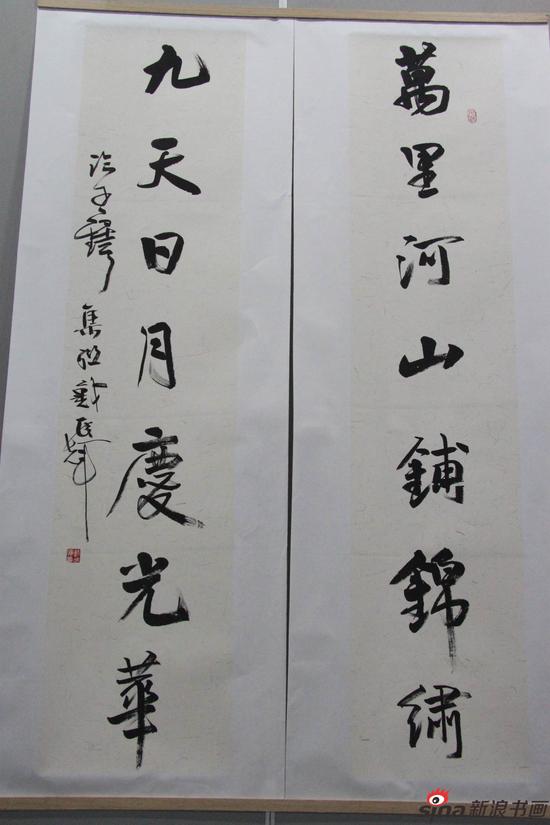 萬里河山鋪錦繡
九天日月慶光華
集聯戴
sina新浪书画